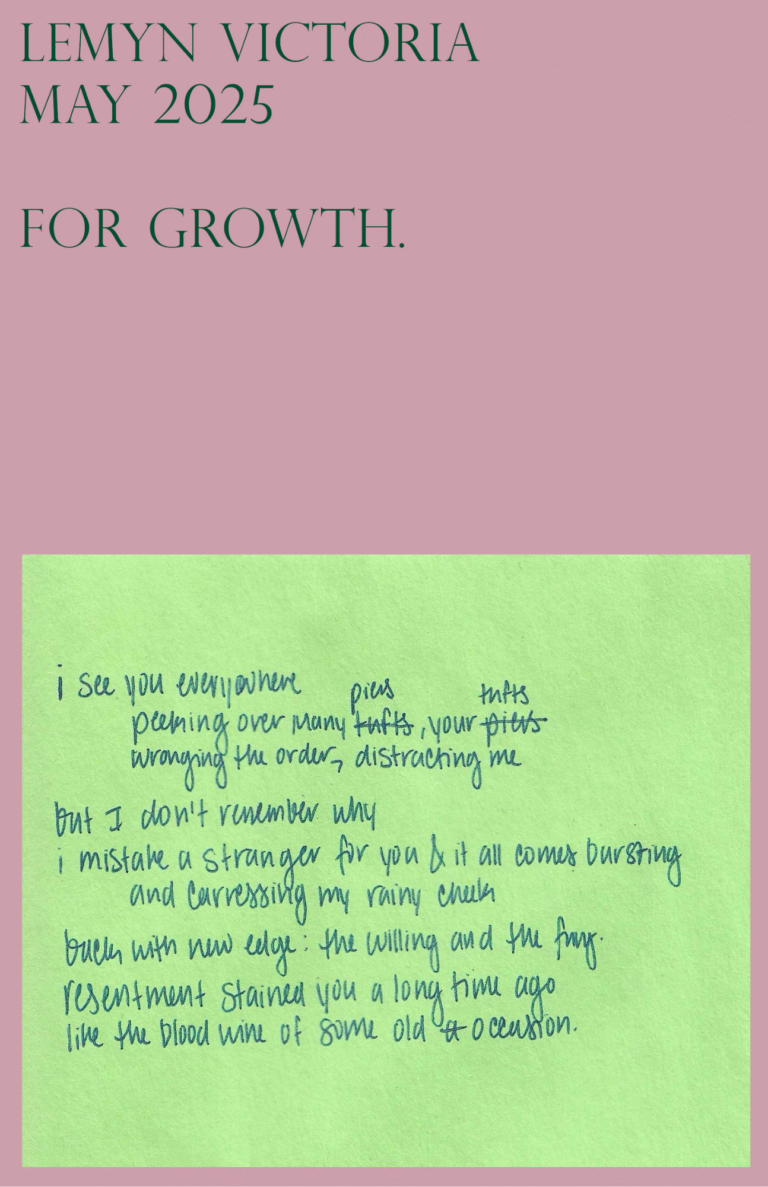 LEMYN VICTORIA
MAY 2025
FOR GROWTH.
i see you everywhere
piers tufts
peeking over many tufts, your piers
wronging the order, distracting me
but I don't remember why
i mistake a stranger for you & it all comes bursting
and carressing my rainy cheek
back with new edge: the willing and the fray.
resentment stained you a long time ago
like the blood wine of some old a occasion.